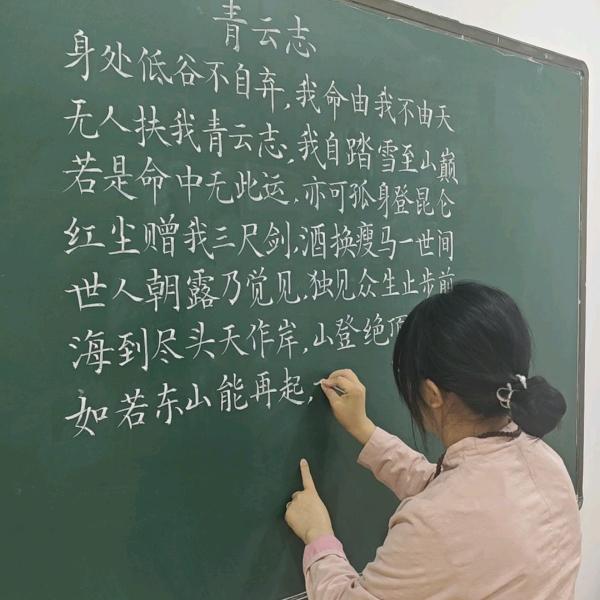 青云志
身处低谷不自弃,我命由我不由天
无人扶我青云志,我自踏雪至山巅
若是命中无此运,亦可孤身登昆仑
红尘赠我三尺剑,酒换瘦马一世间
世人朝露乃觉见,独见众生止步前
海到尽头天作岸,山登绝顶
如若东山能再起,